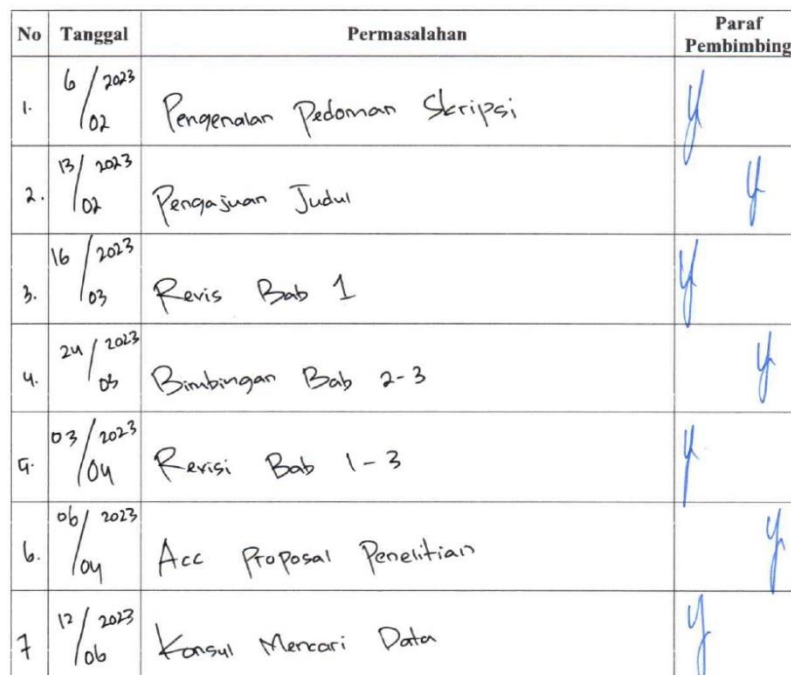 No Tanggal Permasalahan Paraf Pembimbing
1. 6/02 2023 Pengenalan Pedoman Skripsi
2. 13/02 2023 Pengajuan Judul
3. 16/03 2023 Revis Bab 1
4. 24/03 2023 Bimbingan Bab 2-3
5. 03/04 2023 Revisi Bab 1-3
6. 06/04 2023 Acc Proposal Penelitian
7 12/06 2023 Konsul Mencari Data